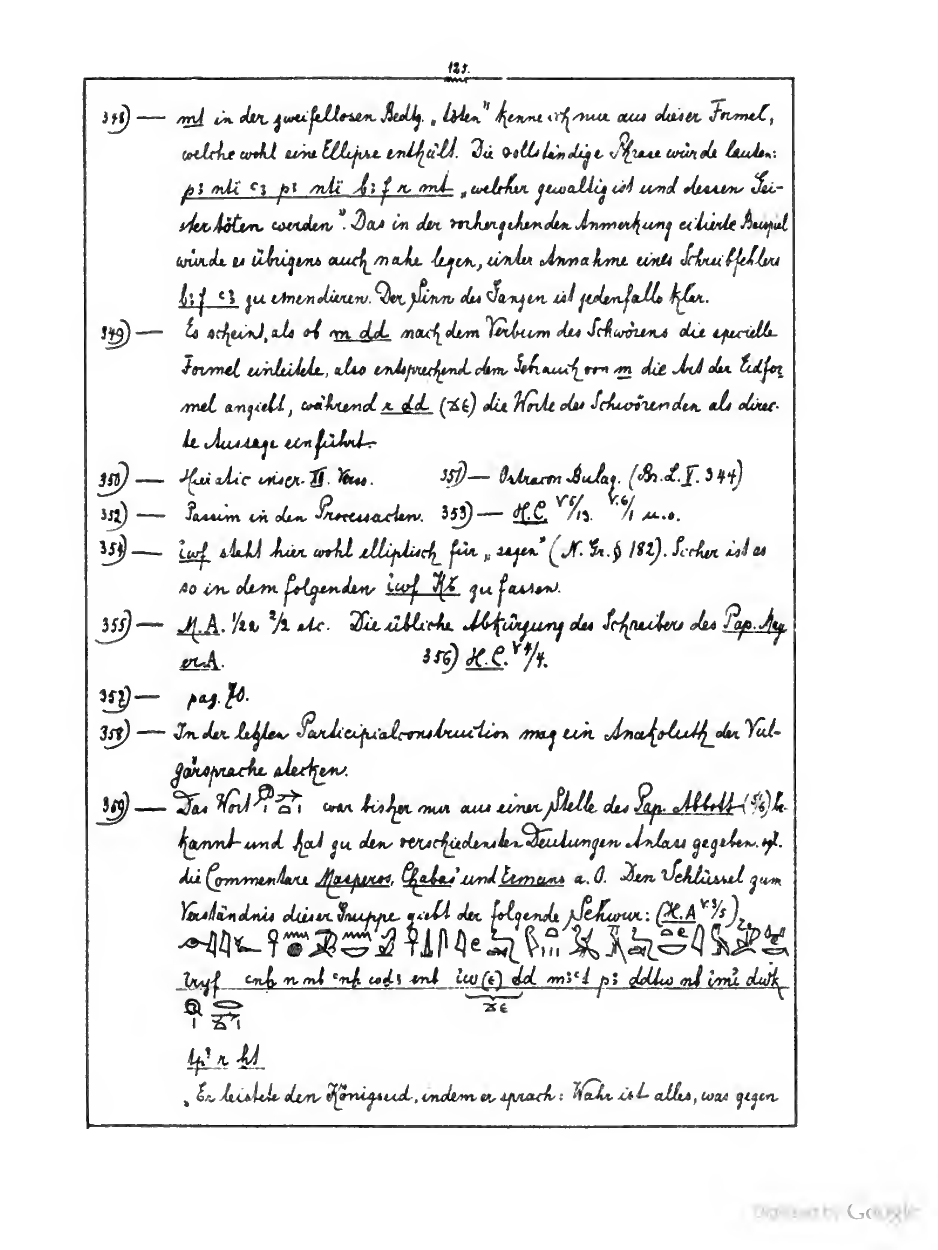 125.
348) — mt in der zweifellosen Bedtg. „töten" kenne ich nur aus dieser Formel,
welche wohl eine Ellipse enthält. Die vollständige Phrase würde lauten:
p3 ntï c3 p3 ntï b3f r mt „welcher gewaltig ist und dessen Gei-
ster töten werden". Das in der vorhergehenden Anmerkung citierte Beispiel
würde es übrigens auch nahe legen, unter Annahme eines Schreibfehlers
b3f c3 zu emendieren. Der Sinn des Ganzen ist jedenfalls klar.
349) — Es scheint, als ob m dd nach dem Verbum des Schwörens die specielle
Formel einleitete, also entsprechend dem Gebrauch von m die Art der Eidfor
mel angiebt, während r dd (ϫⲉ) die Worte des Schwörenden als direc-
te Aussage einführt.
350) — Hieratic inscr. III. Vers. 351) — Ostracon Bulaq. (Br. L. I. 344)
352) — Passim in den Processacten. 353) — H.C. V5/13. V.6/1 u.o.
354) — iwf steht hier wohl elliptisch für „sagen" (N. Gr. § 182). Sicher ist es
so in dem folgenden iwf zu fassen.
355) — M.A. 1/22 2/2 etc. Die übliche Abkürzung des Schreibers des Pap. May
er A. 356) H.C. V4/4.
357) — pag. 70.
358) — In der letzten Participialconstruction mag ein Anakoluth der Vul-
gärsprache stecken.
359) — Das Wort war bisher nur aus einer Stelle des Pap. Abbott (5/6) be-
kannt und hat zu den verschiedensten Deutungen Anlass gegeben. vgl.
die Commentare Masperos, Chabas' und Ermans a. O. Den Schlüssel zum
Verständnis dieser Gruppe giebt der folgende Schwur: (H.A V.3/5)
iryf cnḫ n nb cnḫ wd3 snb iw(f) dd m3ct p3 ddtw nb imï dwtf
ϫⲉ
tp? r ḫt
„Er leistete den Königseid, indem er sprach: Wahr ist alles, was gegen